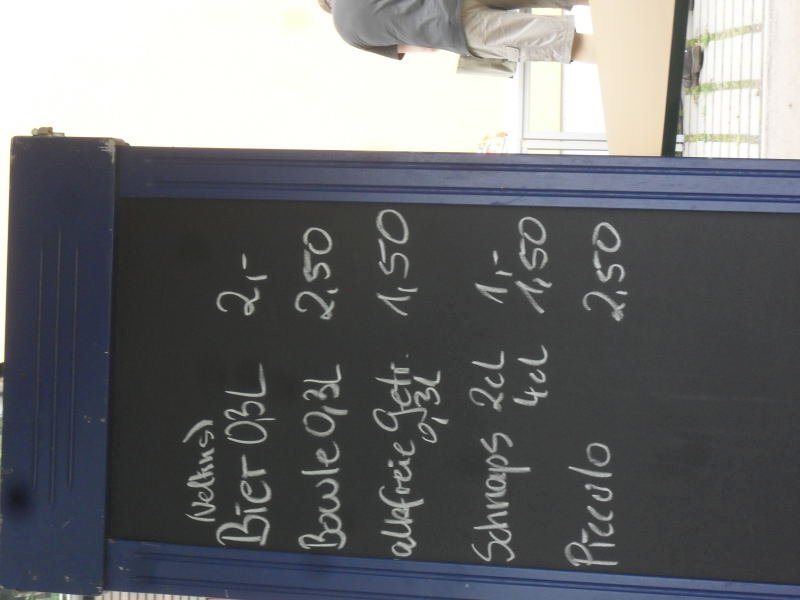 (Veltins)
Bier 0,3L 2,-
Bowle 0,3L 2,50
alkfreie Getr. 1,50
0,3L
Schnaps 2cl 1,-
4cl 1,50
Piccolo 2,50